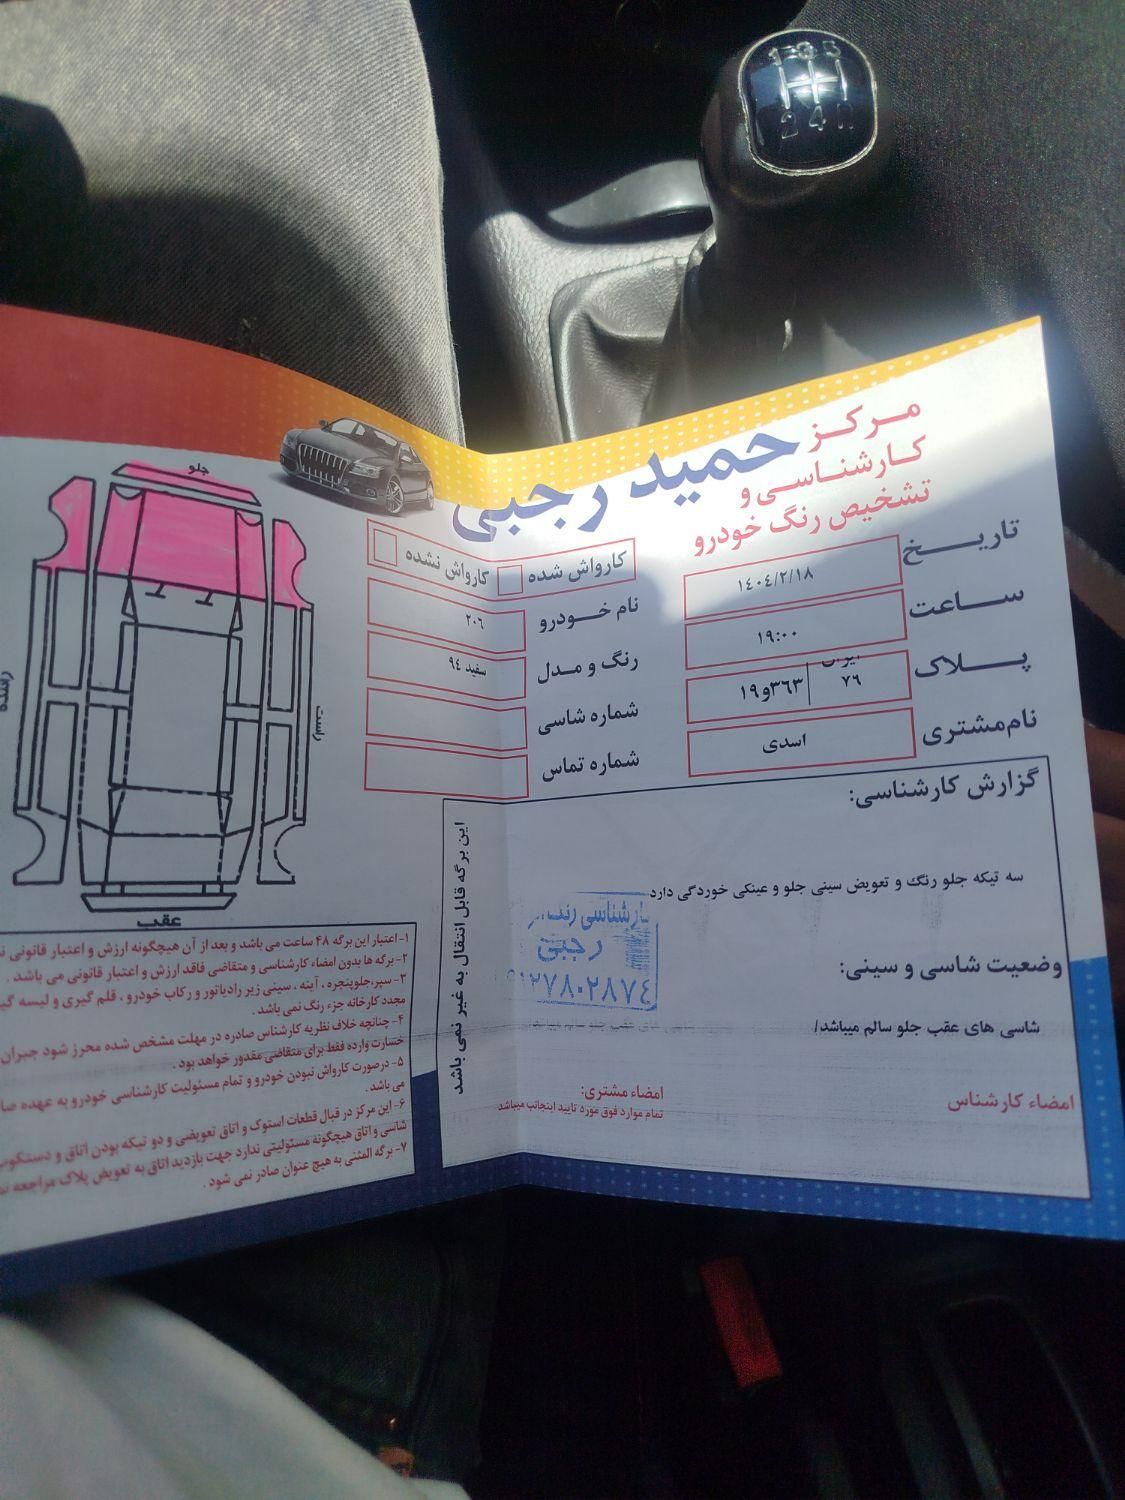 1 3 5
2 4 R
مرکز
کارشناسی و
تشخیص رنگ خودرو
حمید رجبی
کارواش شده
کارواش نشده
تاریخ
۱۴۰۴/۲/۱۸
ساعت
۱۹:۰۰
پلاک
۱۹و۳۶۳
۷۶
نام مشتری
اسدی
نام خودرو
۲۰۶
رنگ و مدل
سفید ۹۴
شماره شاسی
شماره تماس
جلو
راست
راننده
عقب
گزارش کارشناسی:
سه تیکه جلو رنگ و تعویض سینی جلو و عینکی خوردگی دارد
کارشناسی رنگ
رجبی
۹۱۲۷۸۰۲۸۷۴
وضعیت شاسی و سینی:
شاسی های عقب جلو سالم میباشد/
امضاء کارشناس
امضاء مشتری:
تمام موارد فوق مورد تایید اینجانب میباشد
این برگه قابل انتقال به غیر نمی باشد
۱- اعتبار این برگه ۴۸ ساعت می باشد و بعد از آن هیچگونه ارزش و اعتبار قانونی
۲- برگه ها بدون امضاء کارشناسی و متقاضی فاقد ارزش و اعتبار قانونی می باشد .
۳- سپر،جلوپنجره ، آینه ، سینی زیر رادیاتور و رکاب خودرو ، قلم گیری و لیسه
مجدد کارخانه جزء رنگ نمی باشد .
۴- چنانچه خلاف نظریه کارشناس صادره در مهلت مشخص شده محرز شود جبران
خسارت وارده فقط برای متقاضی مقدور خواهد بود .
۵- درصورت کارواش نبودن خودرو و تمام مسئولیت کارشناسی خودرو به عهده
می باشد .
۶- این مرکز در قبال قطعات استوک و اتاق تعویضی و دو تیکه بودن اتاق و
شاسی و اتاق هیچگونه مسئولیتی ندارد جهت بازدید اتاق به تعویض پلاک مراجعه
۷- برگه المثنی به هیچ عنوان صادر نمی شود .